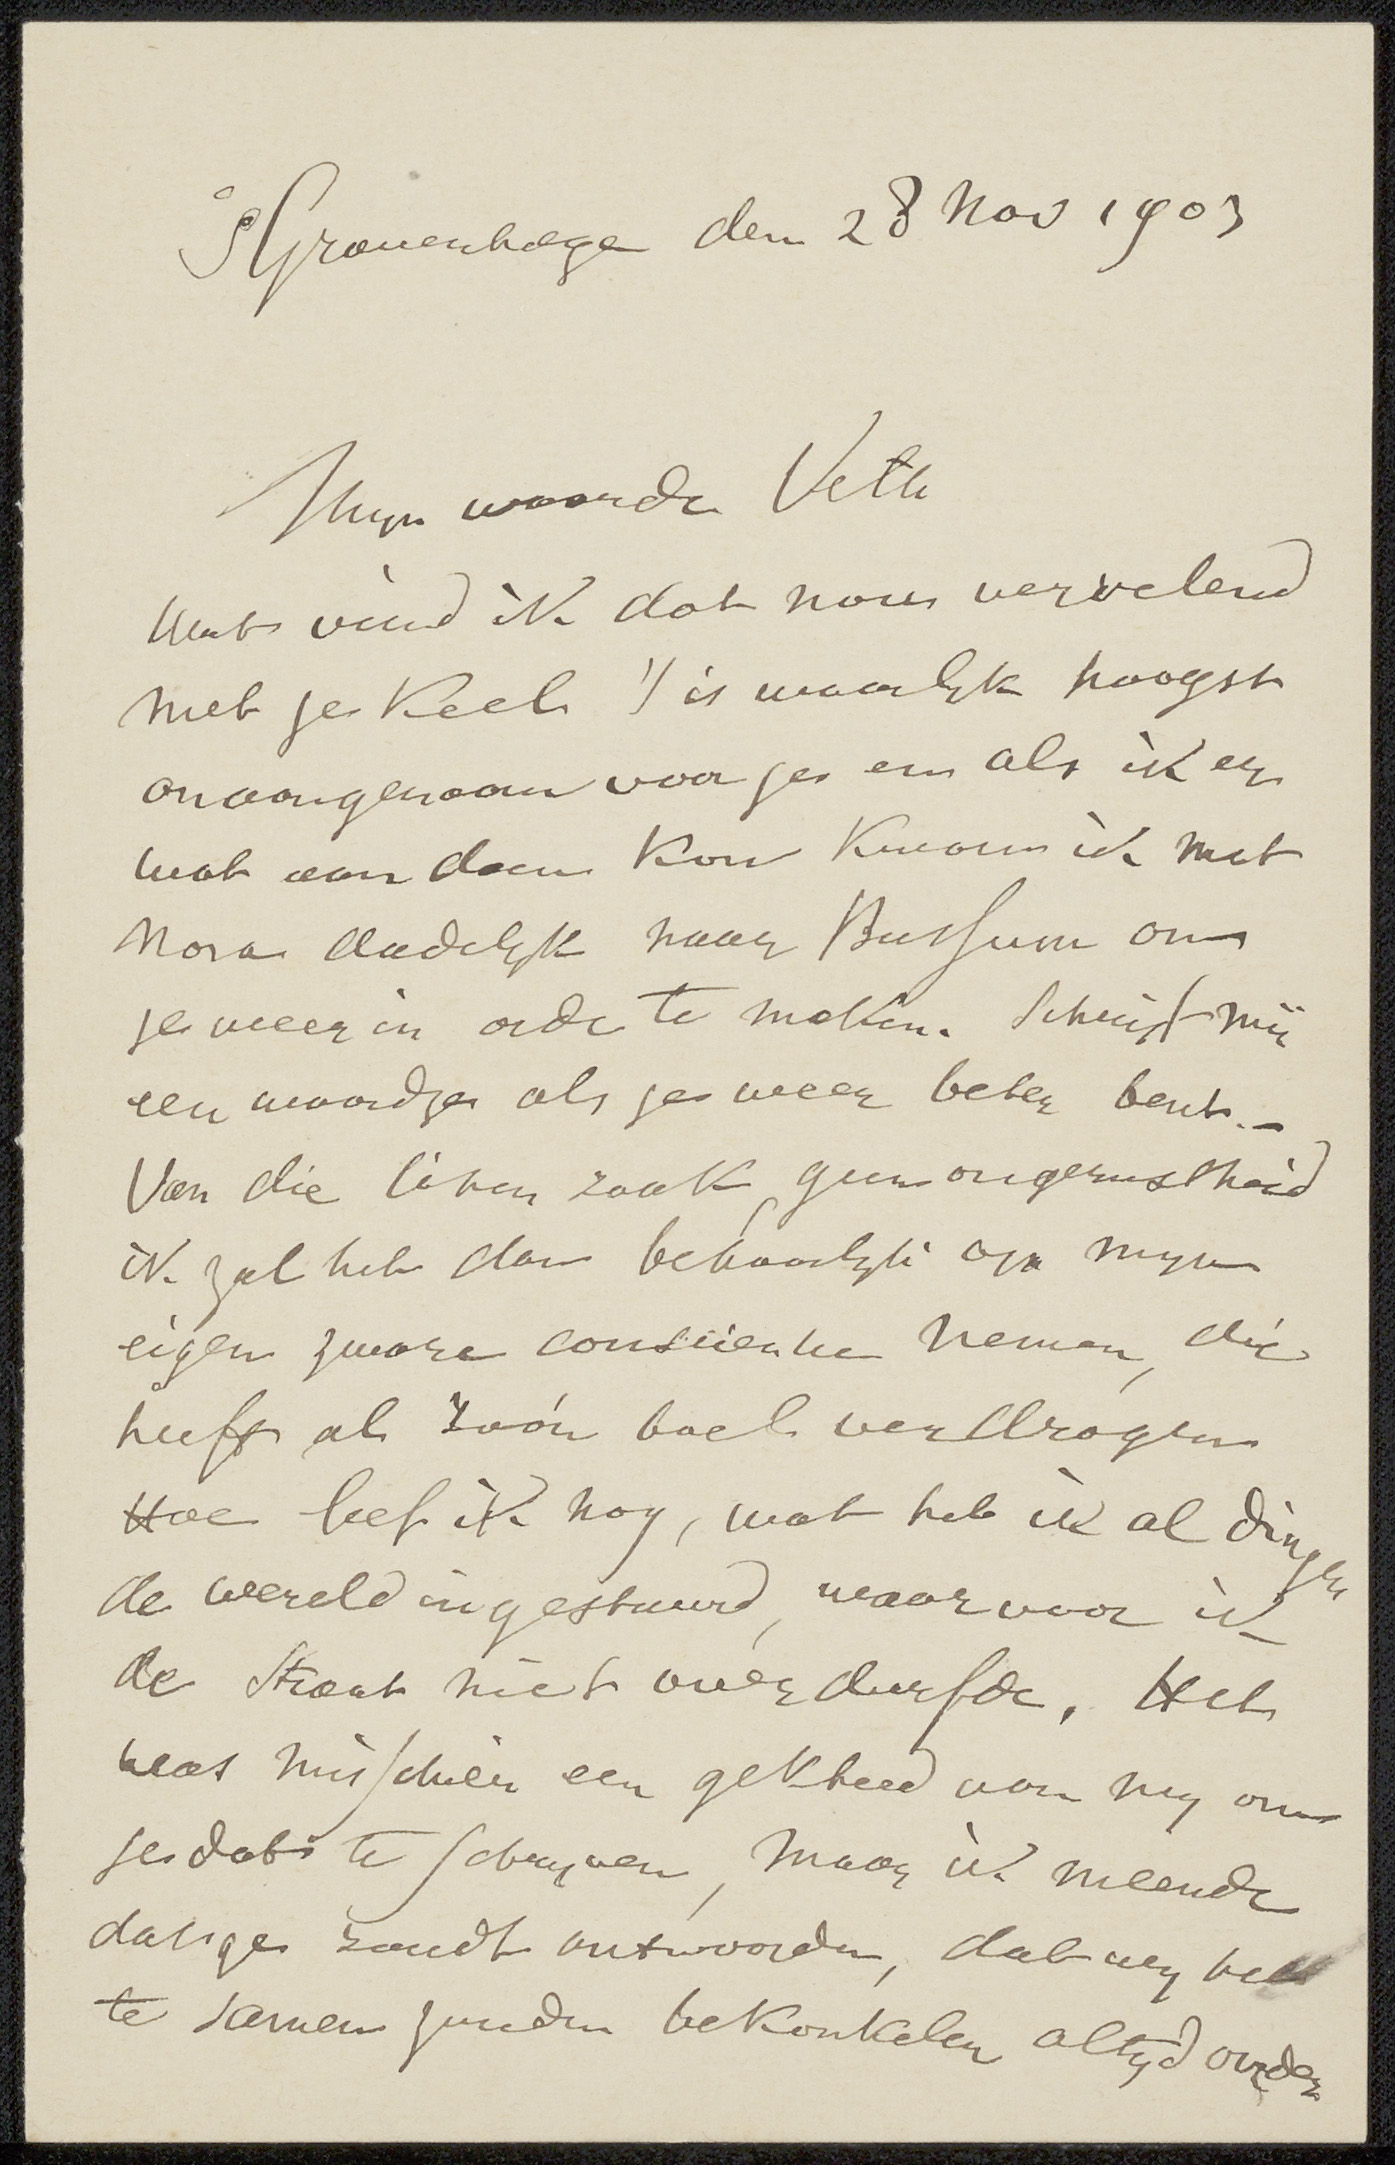 s'Gravenhage den 28 Nov 1903
Mijn waarde Veth
Wat vind ik dat nou vervelend
met je keel 't is waarlyk hoogst
onaangenaam voor je en als ik er
wat aan doen kon kwam ik met
Nora dadelyk naar Bussum om
je weer in orde te maken. Schrijf mij
een woordje als je weer beter bent. –
Van die zaak geen ongerustheid
ik zal het dan behoorlyk op myn
eigen zware consciëntie nemen, die
heeft al zoo'n boel verdragen
Hoe leef ik nog, wat heb ik al dingen
de wereld ingestuurd, waarvoor ik
de straat niet over durfde. Het
was misschien een gekheid van my om
je dat te schryven, maar ik meende
dat je zoudt antwoorden, dat wy het
te samen zouden bekonkelen altyd onder